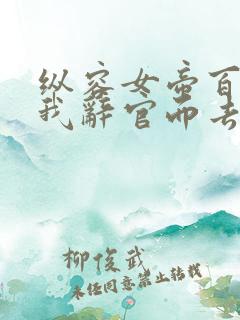 纵容女帝百
我辞官而去
柳俊武
未经同意禁止转载